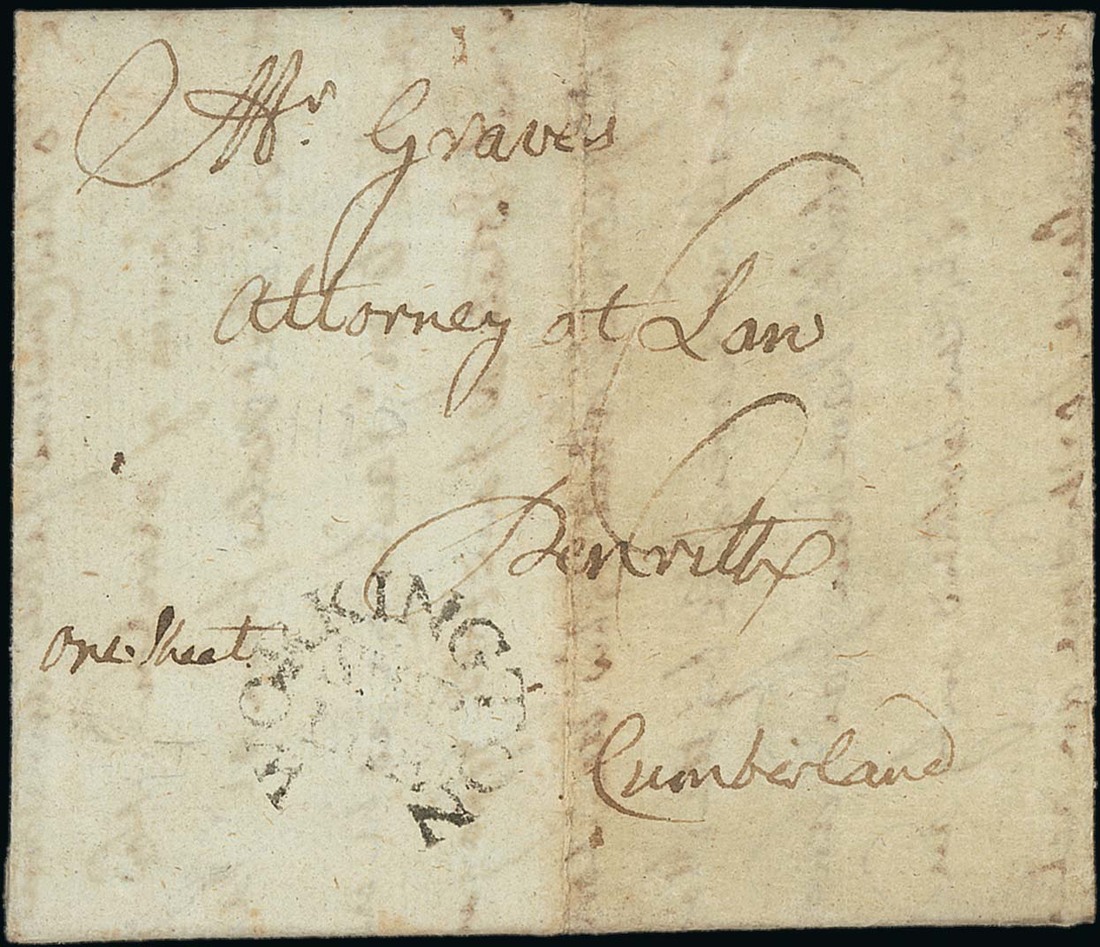 Mr. Graves
Attorney at Law
Penrith
One Sheet.
WORKINGTON
Cumberland